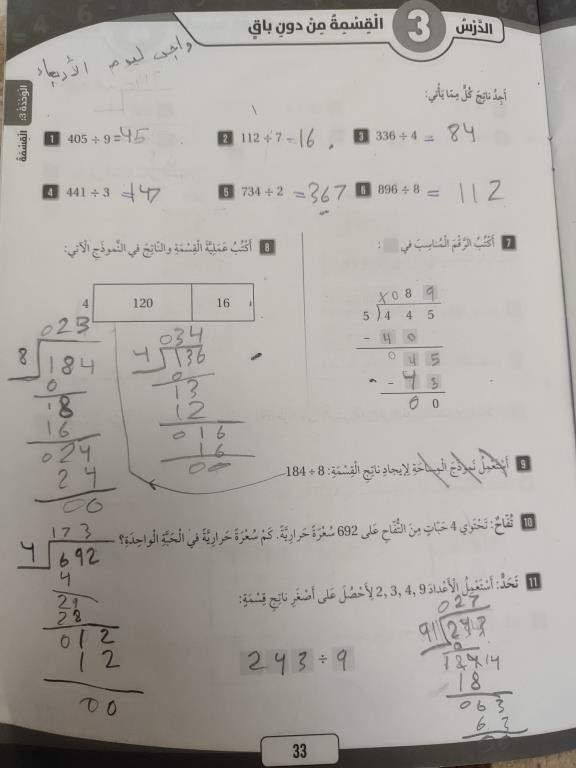 الدَّرْسُ 3 الْقِسْمَةُ مِنْ دونِ باقٍ
واجب ليوم الأربعاء
الْوَحْدَةُ 3:
الْقِسْمَةُ
أَجِدُ ناتِجَ كُلٍّ مِمّا يَأْتي:
1 405 ÷ 9 = 45
2 112 ÷ 7 = 16
3 336 ÷ 4 = 84
4 441 ÷ 3 = 147
5 734 ÷ 2 = 367
6 896 ÷ 8 = 112
7 أَكْتُبُ الرَّقْمَ الْمُناسِبَ في :
089
5 445
- 40
045
0 0
8 أَكْتُبُ عَمَلِيَّةَ الْقِسْمَةِ والنّاتِجَ في النَّموذَجِ الْآتي:
4 120 16
034
4 136
0
13
12
016
16
00
023
8 184
0
18
16
024
24
00
9 أَسْتَعْمِلُ نَموذَجَ الْمِساحَةِ لِإيجادِ ناتِجِ الْقِسْمَةِ: 8 ÷ 184
10 تُفّاحٌ: تَحْتَوي 4 حَبّاتٍ مِنَ التُّفّاحِ عَلى 692 سُعْرَةً حَرارِيَّةً. كَمْ سُعْرَةً حَرارِيَّةً في الْحَبَّةِ الْواحِدَةِ؟
173
4 692
4
29
28
012
12
00
11 تَحَدٍّ: أَسْتَعْمِلُ الْأَعْدادَ 2, 3, 4, 9 لِأَحْصُلَ عَلى أَصْغَرِ ناتِجِ قِسْمَةٍ:
243 ÷ 9
027
18
063
63
33